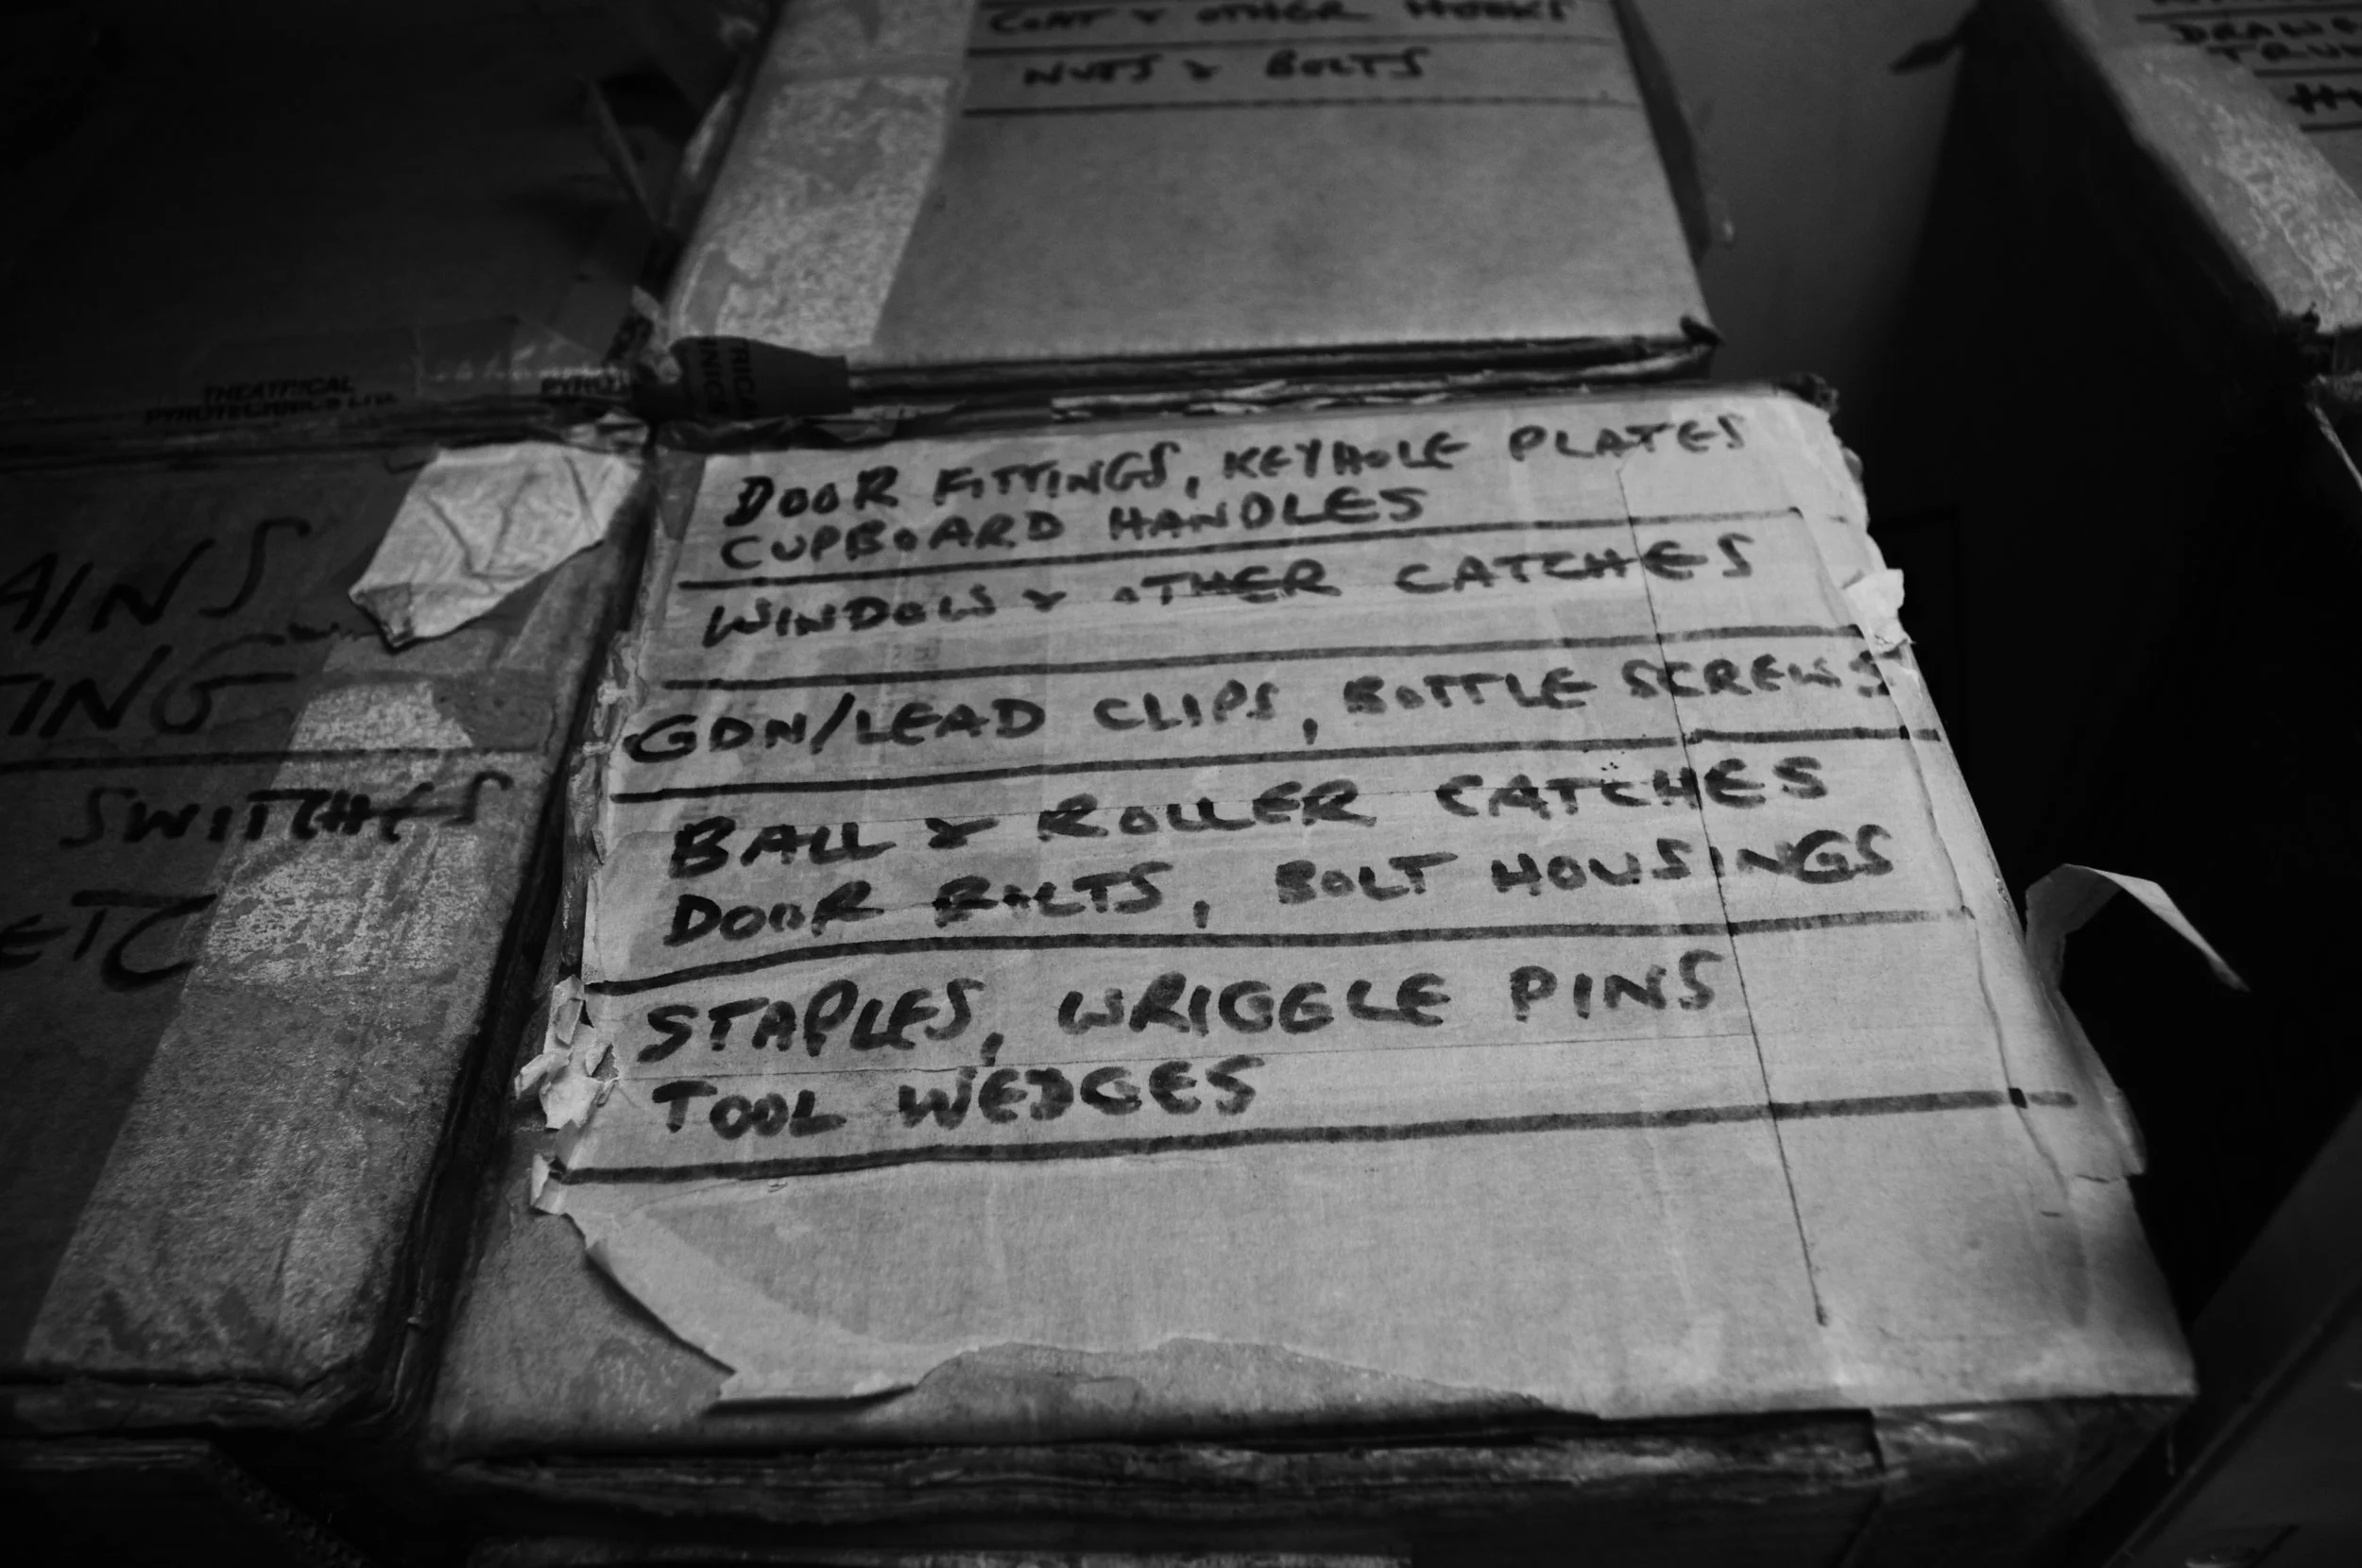 COAT & OTHER HOOKS
NUTS & BOLTS
THEATRICAL
PYROTECHNICS LTD.
DOOR FITTINGS, KEYHOLE PLATES
CUPBOARD HANDLES
WINDOW & OTHER CATCHES
GDN/LEAD CLIPS, BOTTLE SCREWS
BALL & ROLLER CATCHES
DOOR BOLTS, BOLT HOUSINGS
STAPLES, WRIGGLE PINS
TOOL WEDGES
AINS
TING
SWITCHES
ETC